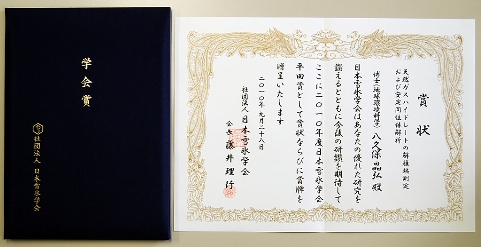 学会賞
社団法人 日本雪氷学会
賞状
天然ガスハイドレートの解離熱測定
および安定同位体解析
博士(地球環境科学) 八久保晶弘 殿
日本雪氷学会はあなたの優れた研究を
讃えるとともに今後の研鑽を期待して
ここに二〇一〇年度日本雪氷学会
平田賞として賞状ならびに賞牌を
贈呈いたします
二〇一〇年九月二十八日
社団法人 日本雪氷学会
会長 藤井理行